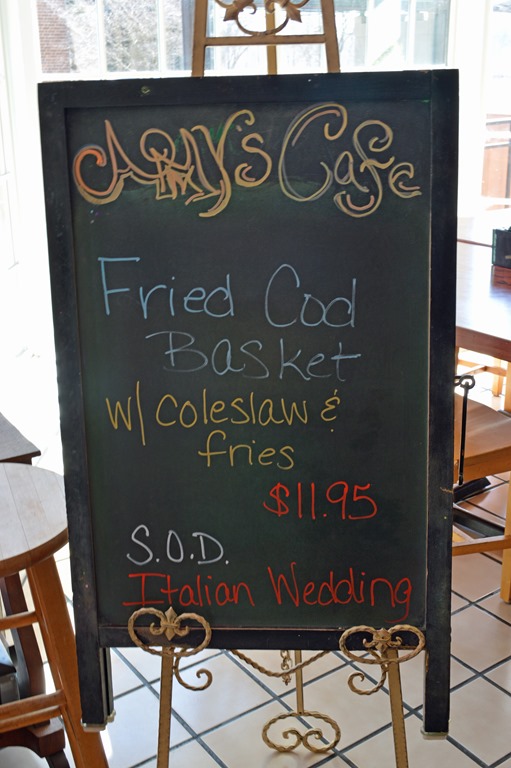 AMY's Cafe
Fried Cod
Basket
w/ coleslaw &
fries
$11.95
S.O.D.
Italian Wedding